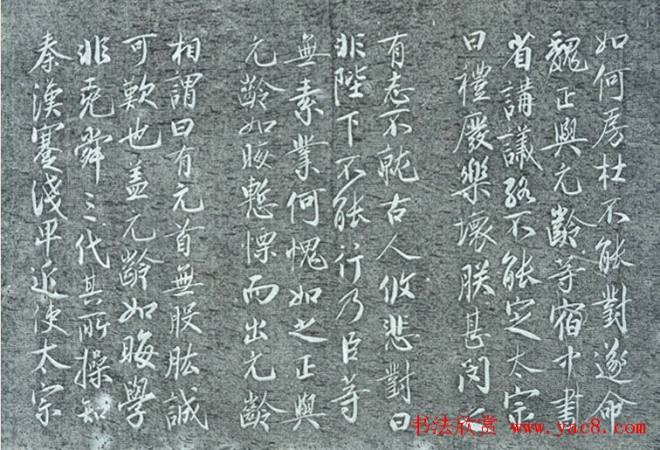 如何房杜不能對遂命
魏正與元齡等宿中書
省講議終不能定太宗
曰禮廢樂壞朕甚閔之
有志不就古人攸悲對曰
非陛下不能行乃臣等
無素業何愧如之正與
元齡如晦慙慄而出元齡
相謂曰有元首無股肱誠
可歎也蓋元齡如晦學
非堯舜三代其所操知
秦漢蹇淺卑近使太宗
书法欣赏 www.yac8.com